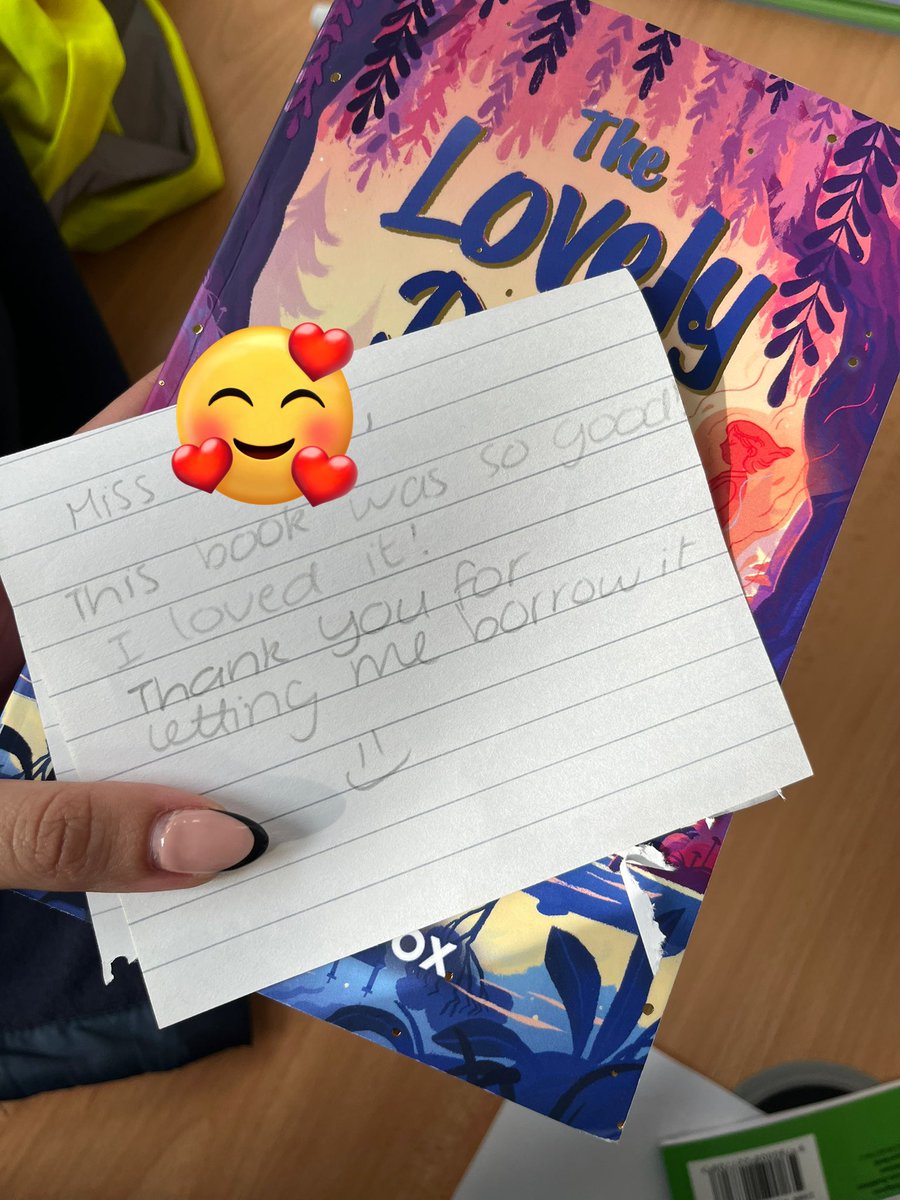 The
Lovely
Miss
This book was so good!
I loved it!
Thank you for
letting me borrow it
ox